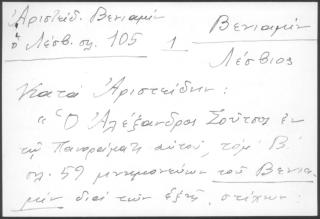 Ἀριστείδ. Βενιαμίν
ὁ Λέσβ. σλ. 105
1
Βενιαμίν
Λέσβιος
Κατὰ Ἀριστείδην:
"Ὁ Ἀλέξανδρος Σοῦτσος ἐν
τῷ Πανοράματι αὐτοῦ, τόμ. Β΄
σλ. 59 μνημονεύων τοῦ Βενια-
μὶν διὰ τῶν ἑξῆς στίχων: